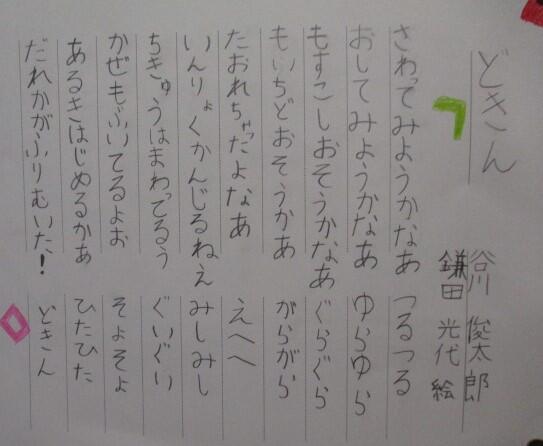 どきん
谷川 俊太郎
鎌田 光代 絵
さわってみようかなあ つるつる
おしてみようかなあ ゆらゆら
もすこしおそうかなあ ぐらぐら
もいちどおそうかあ がらがら
たおれちゃったよなあ えへへ
いんりょくかんじるねえ みしみし
ちきゅうはまわってるう ぐいぐい
かぜもふいてるよお そよそよ
あるきはじめるかあ ひたひた
だれかがふりむいた! どきん